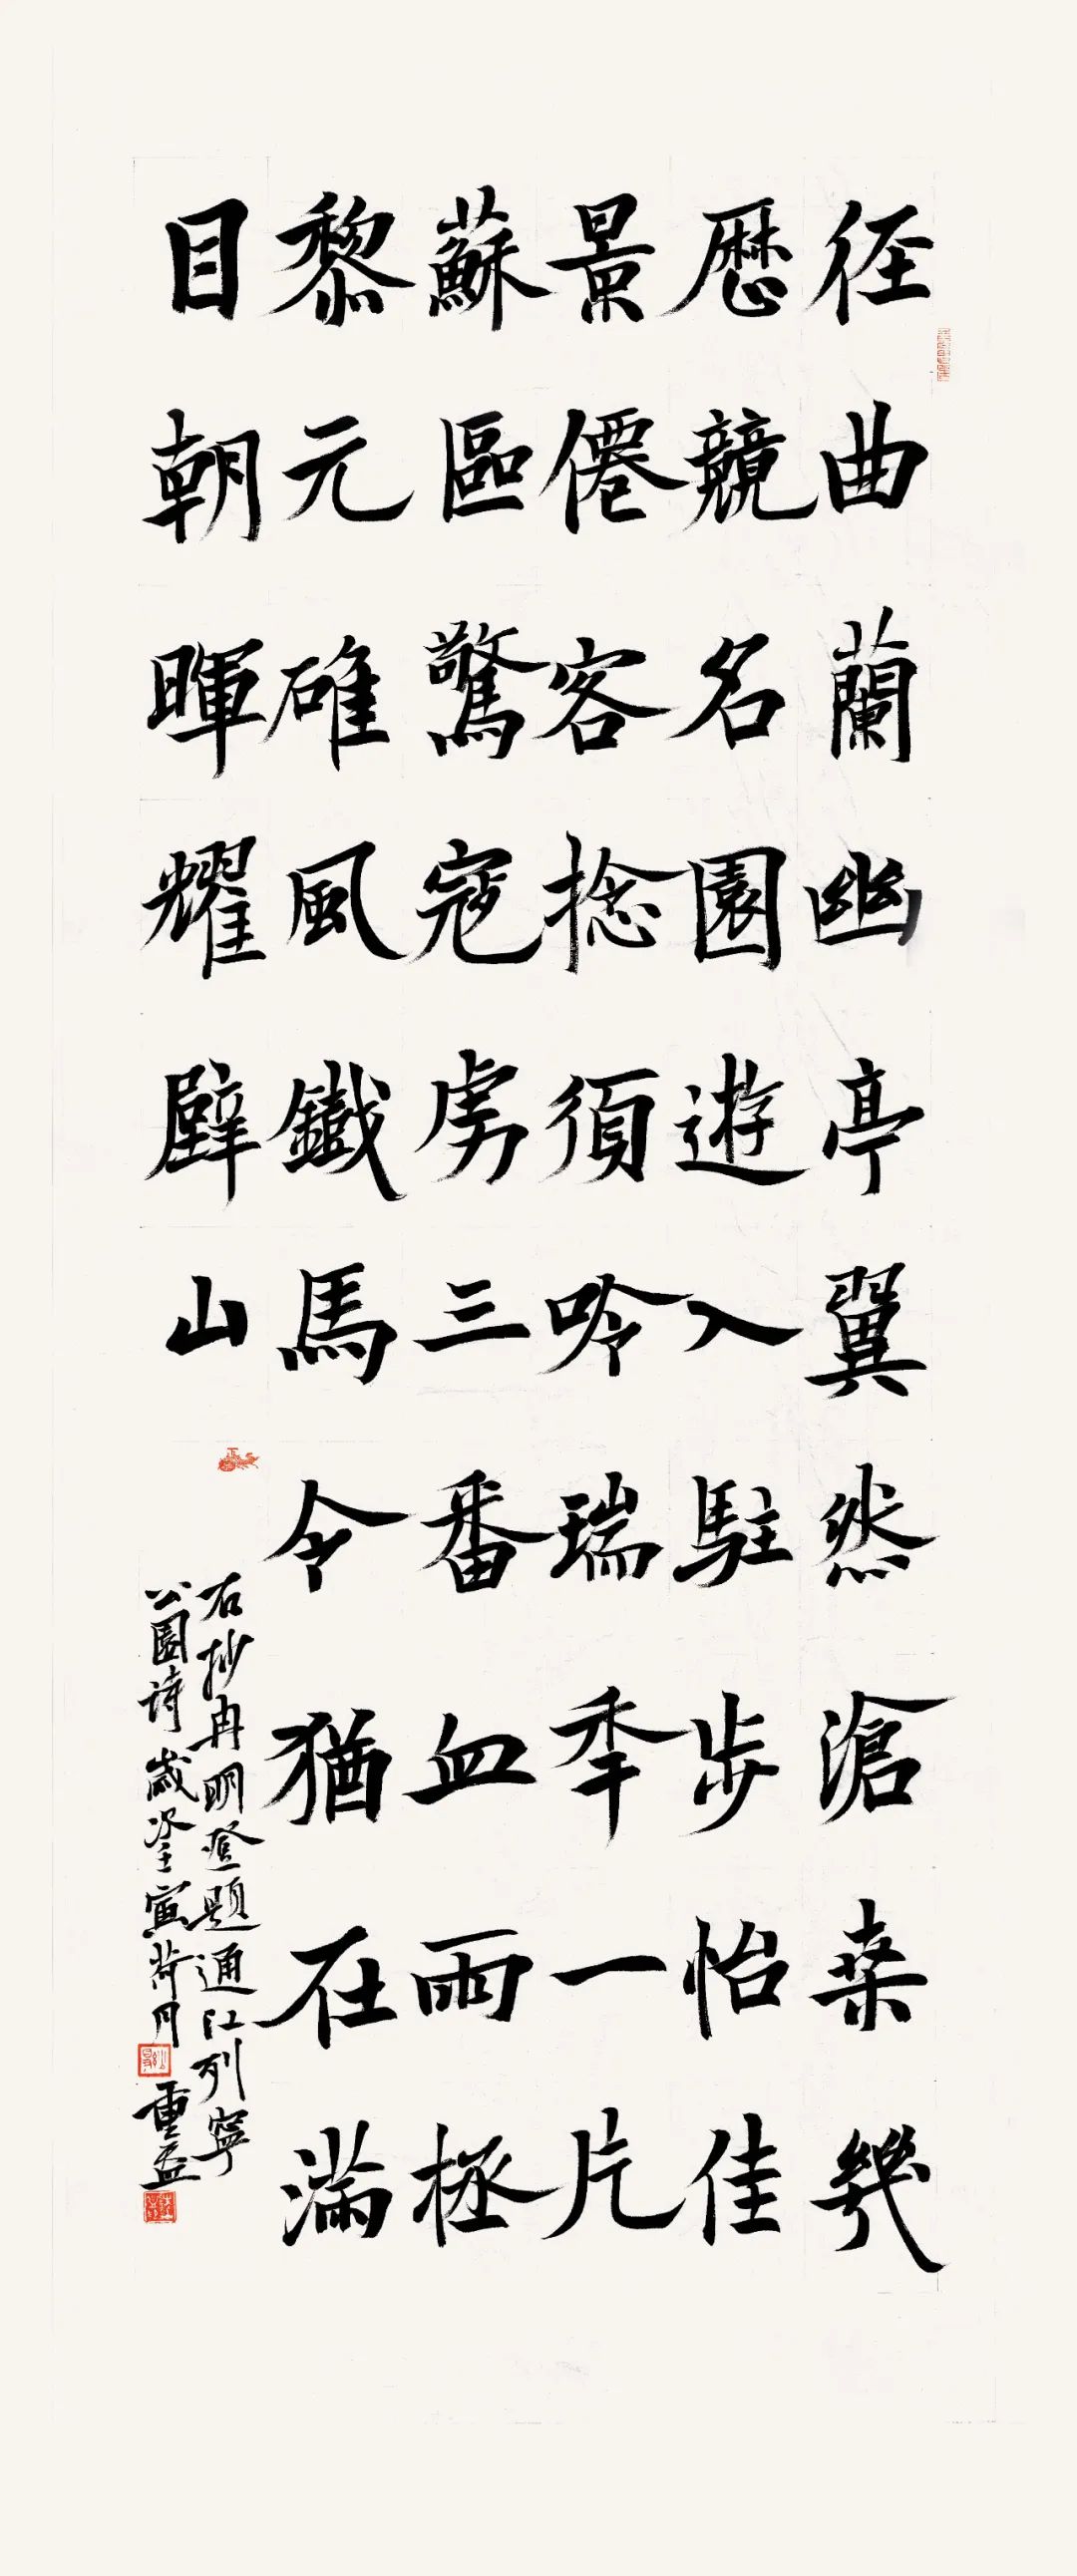 径曲蘭幽亭翼然滄桑幾
歴競名園遊入駐步怡佳
景僊客捻須吟瑞年一片
蘇區驚寇虜三番血雨拯
黎元碓風鐵馬令猶在滿
目朝暉耀壁山
右抄冉明登題通江列寧
公園詩歲在壬寅荷月重益